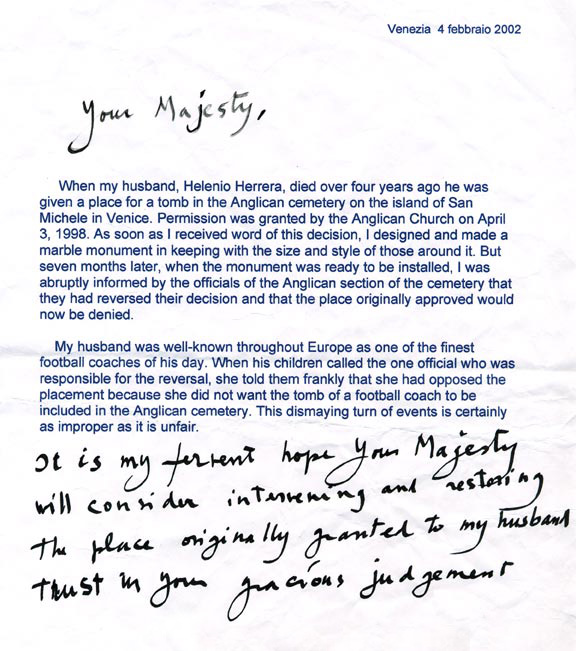 Venezia 4 febbraio 2002
Your Majesty,
When my husband, Helenio Herrera, died over four years ago he was
given a place for a tomb in the Anglican cemetery on the island of San
Michele in Venice. Permission was granted by the Anglican Church on April
3, 1998. As soon as I received word of this decision, I designed and made a
marble monument in keeping with the size and style of those around it. But
seven months later, when the monument was ready to be installed, I was
abruptly informed by the officials of the Anglican section of the cemetery that
they had reversed their decision and that the place originally approved would
now be denied.
My husband was well-known throughout Europe as one of the finest
football coaches of his day. When his children called the one official who was
responsible for the reversal, she told them frankly that she had opposed the
placement because she did not want the tomb of a football coach to be
included in the Anglican cemetery. This dismaying turn of events is certainly
as improper as it is unfair.
It is my fervent hope Your Majesty
will consider intervening and restoring
the place originally granted to my husband
trust in your gracious judgement